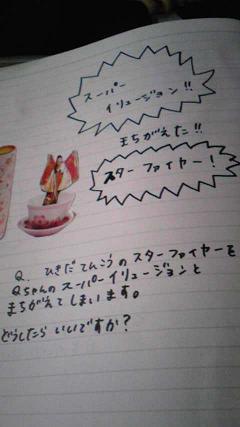 スーパー
イリュージョン!!
まちがえた!!
スターファイヤー!
Q. ひきだてんこうのスターファイヤーを
Qちゃんのスーパーイリュージョンと
まちがえてしまいます。
どうしたらいいですか?